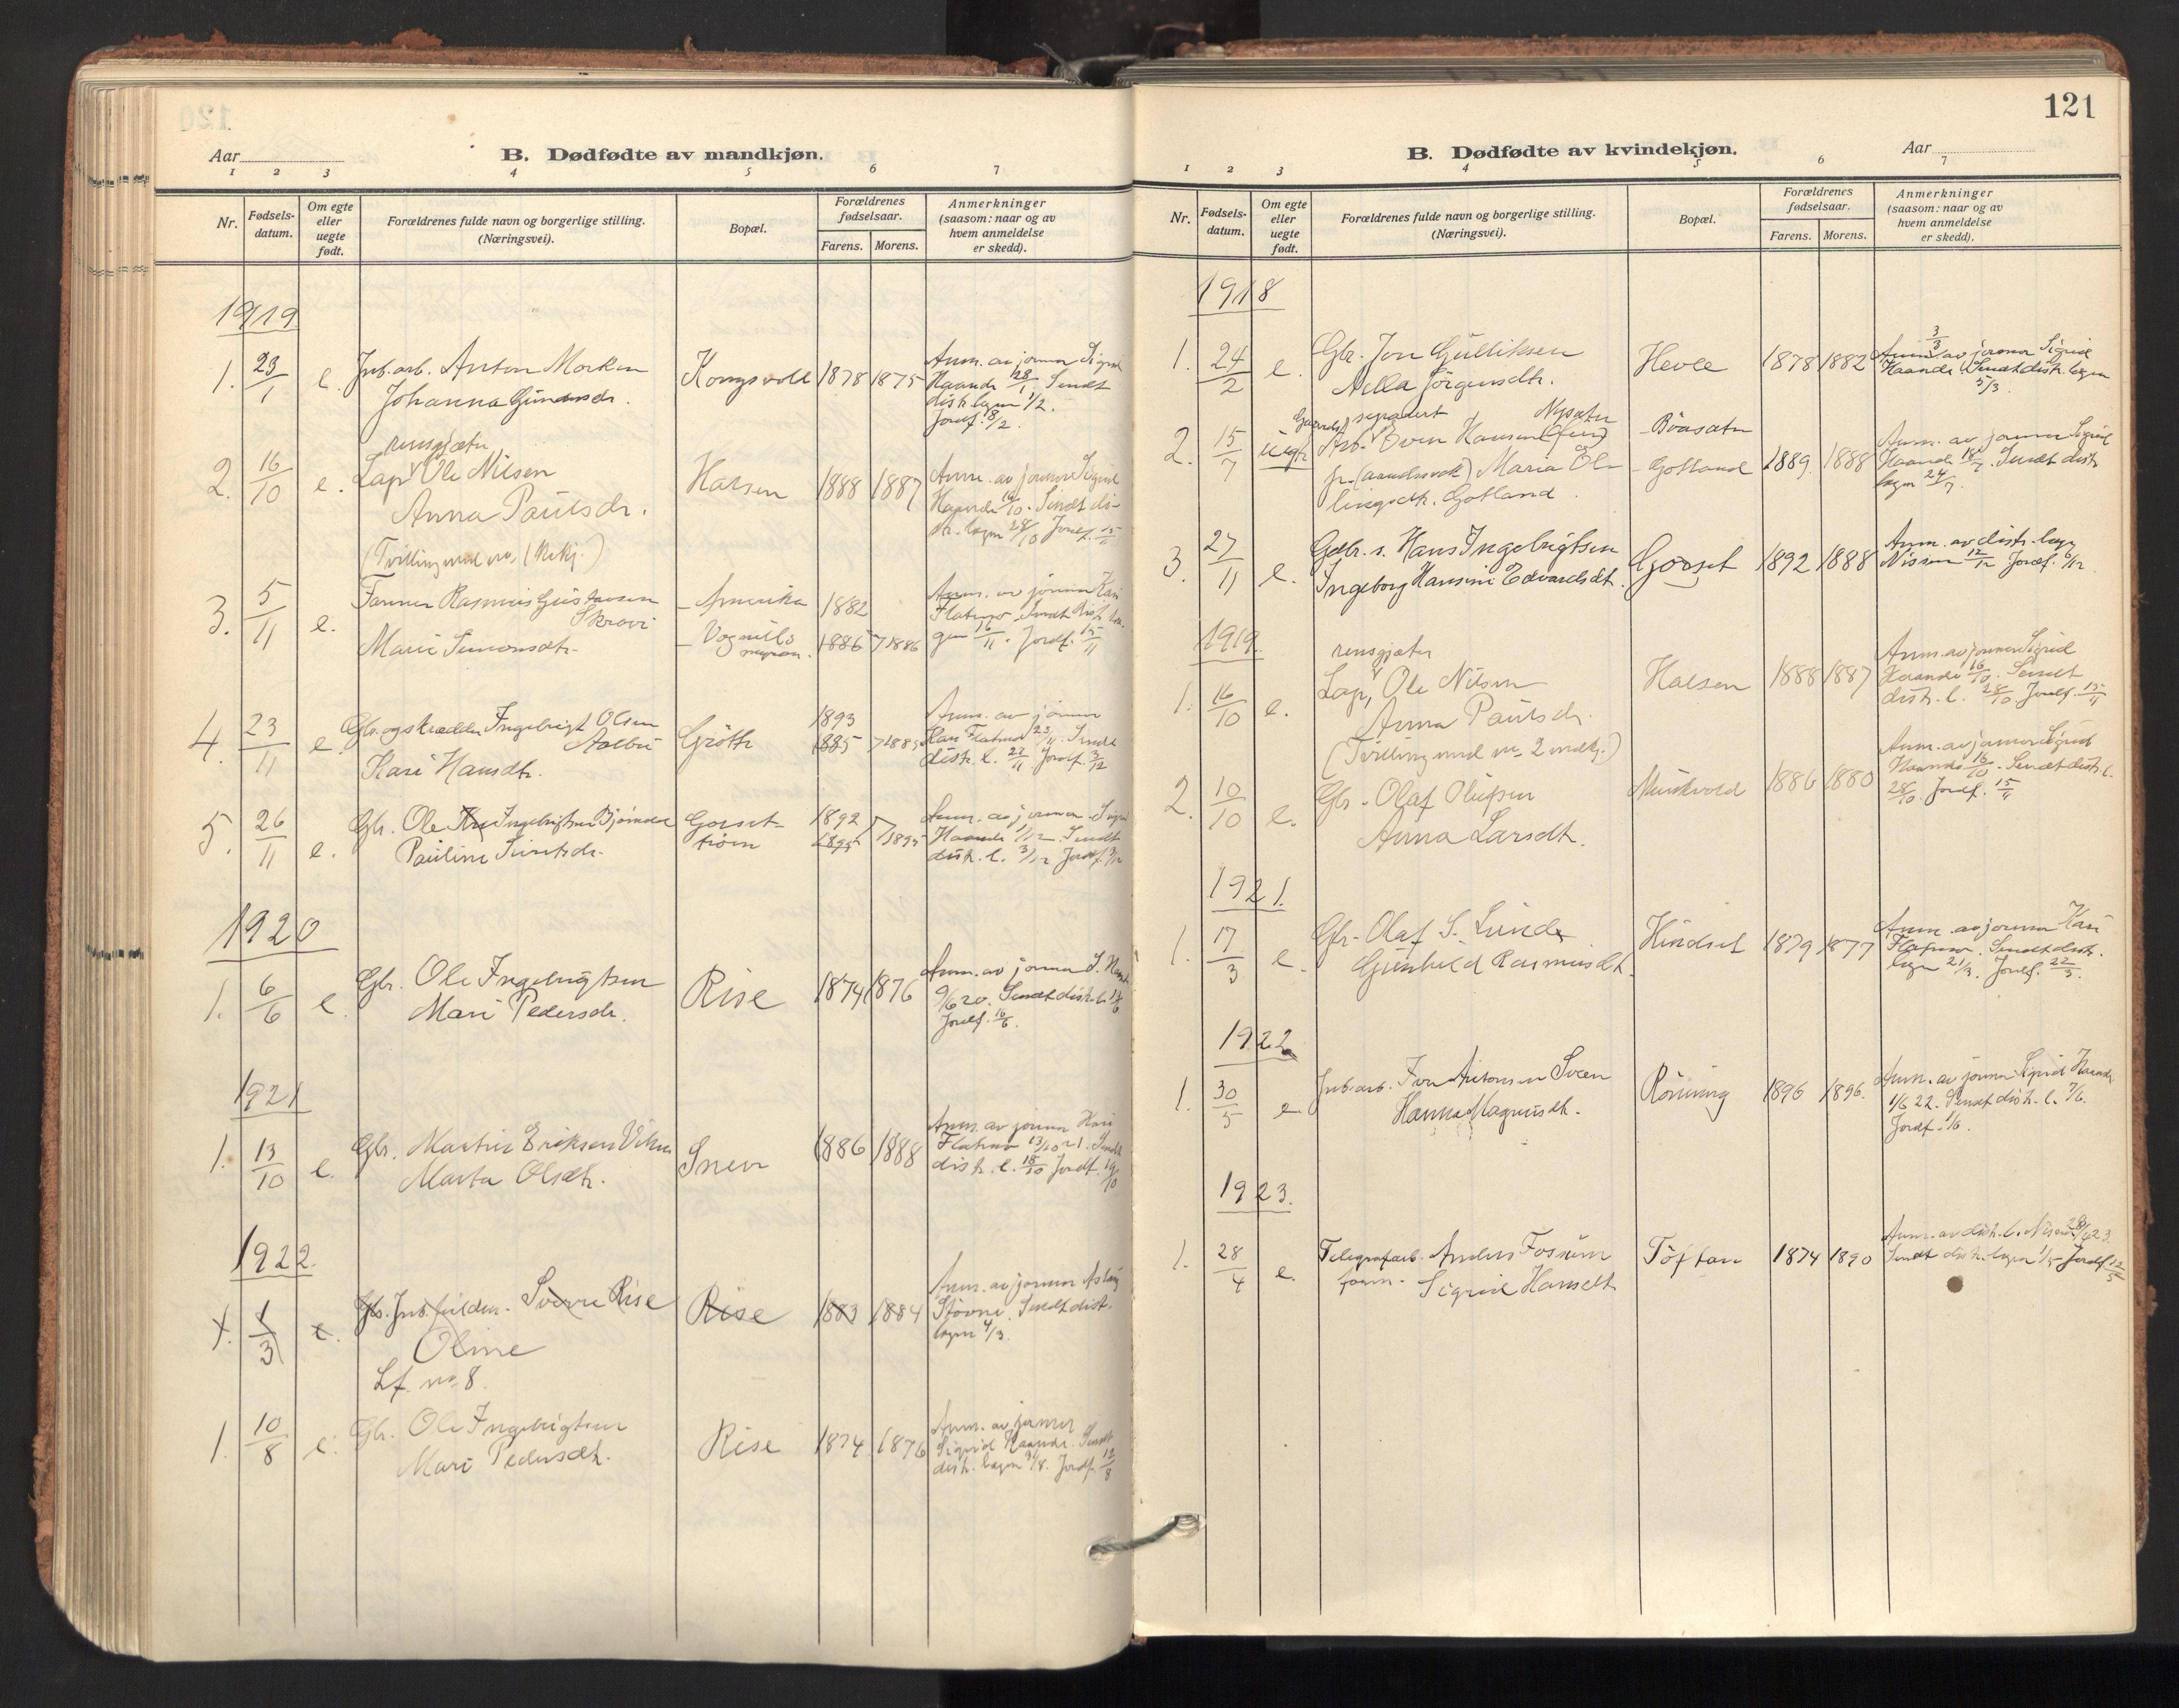 B. Dødfødte av mandkjøn.
Aar
1 2 3 4 5 6 7
Nr.
Fødsels-
datum.
Om egte
eller
uegte
født.
Forældrenes fulde navn og borgerlige stilling.
(Næringsvei).
Bopæl.
Forældrenes
fødselsaar.
Farens. Morens.
Anmerkninger
(saasom: naar og av
hvem anmeldelse
er skedd).
1919
1. 23/1 e. Jnb.arb. Anton Morken Kongsvold 1878 1875
Johanna
Anm. av jormor Sigrid
Haande 28/1. Sendt
distr. lægen 1/2.
Jordf. 8/2.
rensgjæter
2. 16/10 e. Lap Ole Nilsen Halsen 1888 1887
Anna Paulsdr.
(Tvilling med no. 1 kvkj.)
Anm. av jormor Sigrid
Haande 16/10. Sendt di-
str. lægen 28/10 Jordf. 15/11
3. 5/11 e. Farmer Rasmus Gustavsen - Amerika 1882
Skrovi
Marie Simonsdtr. - Vognilds 1886
Anm. av jormor Kari
Flatmo. Sendt distr. læ-
gen 16/11. Jordf. 15/11
4. 23/11 e. Gbr. og skrædder Ingebrigt Olsen Grötte 1893
Aalbu 1885
Kari Hansdtr.
Anm. av jormor
Kari Flatmo 23/11. Sendt
distr. l. 27/11. Jordf. 3/12
5. 26/11 e. Gbr. Ole Ingebrigtsen Gorset- 1892
Pauline Sivertsdr. 1895
Anm. av jormor Sigrid
Haande 1/12. Sendt
distr. l. 3/12 Jordf. 3/12
1920
1. 6/6 e. Gbr. Ole Ingebrigtsen Rise 1874 1876
Mari Pedersdr.
Anm. av jormor S. Haande
9/6 20. Sendt distr. l.
Jordf. 16/6.
1921
1. 13/10 e. Gbr. Martin Eriksen Viken 1886 1888
Marta Olsdtr.
Anm. av jormor Kari
Flatmo 13/10 21. Sendt
distr. l. 18/10 Jordf. 19/10
1922.
1. 1/3 e. Gbr. Rise Rise 1883 1884
Oline
Lf. no 8.
Anm. av jormor Aslaug
Stövne. Sendt distr.
lægen 4/3.
1. 10/8 e. Gbr. Ole Ingebrigtsen Rise 1874 1876
Mari Pedersdtr.
Anm. av jormor
Sigrid Haande. Sendt
distr. lægen Jordf. 12/8
121
B. Dødfødte av kvindekjøn.
Aar
1 2 3 4 5 6 7
Nr.
Fødsels-
datum.
Om egte
eller
uegte
født.
Forældrenes fulde navn og borgerlige stilling.
(Næringsvei).
Bopæl.
Forældrenes
fødselsaar.
Farens. Morens.
Anmerkninger
(saasom: naar og av
hvem anmeldelse
er skedd).
1918
1. 24/2 e. Gbr. Jon Gulliksen Hevle 1878 1882
Nella Jörgensdtr.
3/3
Anm. av jormor Sigrid
Haande. Sendt distr. lægen
5/3.
separert
2. 15/7 uegte Arb. Even Hansen - Böasæter
fr. Maria - Gotland 1889 1888
Gotland.
Anm. av jormor Sigrid
Haande 18/7. Sendt distr.
lægen 24/7.
3. 27/11 e. Gdbr. s. Hans Ingebrigtsen Gorset 1892 1888
Ingeborg Hansine Edvardsdtr.
Anm. av distr. læge
Nissen 12/12 Jordf. 6/12
1919.
rensgjæter
1. 16/10 e. Lap, Ole Nilsen Halsen 1888 1887
Anna Paulsdr.
(Tvilling med no 2 mdkj.)
Anm. av jormor Sigrid
Haande 16/10. Sendt
distr. l. 28/10 Jordf. 15/11
2. 10/10 e. Gbr. Olaf Olufsen Munkvold 1886 1880
Anna Larsdtr.
Anm. av jormor Sigrid
Haande 16/10. Sendt distr. l.
28/10. Jordf. 15/11
1921.
1. 17/3 e. Gbr. Olaf S. Lunde Hindset 1879 1877
Gunhild Rasmusdtr.
Anm. av jormor Kari
Flatmo. Sendt distr.
lægen 21/3. Jordf. 22/3.
1922
1. 30/5 e. Jnb.arb. Iver Antonsen Svæen Rönning 1896 1896.
Hanna Magnusdtr.
Anm. av jormor Sigrid Haande
1/6 22. Sendt distr. l. 7/6.
Jordf. 1/6.
1923.
1. 28/4 e. Telegrafarb. Anders Fossum Töftan 1874 1890
form. Sigrid Hansdtr
Anm. av distr. l. Nissen 28/4 23.
Sendt distr. lægen 1/5 Jordf. 12/5